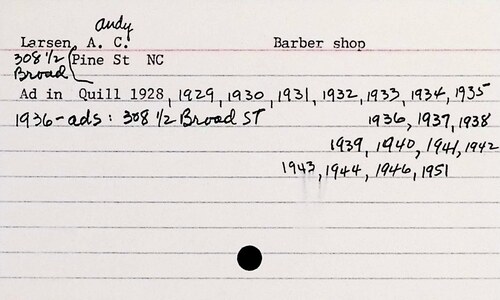 andy
Larsen, A. C. Barber shop
308 1/2 Broad (Pine St NC
Ad in Quill 1928, 1929, 1930, 1931, 1932, 1933, 1934, 1935
1936-ads: 308 1/2 Broad ST 1936, 1937, 1938
1939, 1940, 1941, 1942
1943, 1944, 1946, 1951